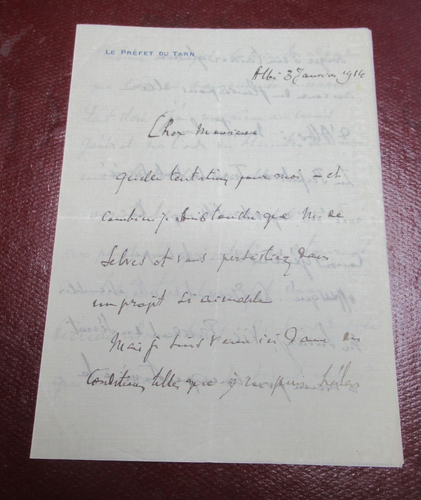 LE PRÉFET DU TARN
Albi 3 Janvier 1914
Cher Monsieur
quelle tentation pour moi – et
combien je suis touché que M. de
Selves et vous persistiez dans
un projet si aimable
Mais je suis venu ici dans des
conditions telles que je ne puis hélas